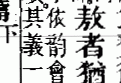 敖者猶
依韵會
其義一
下